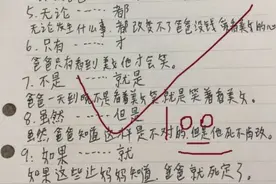 5.无论 …… 都
无论发生什么事,都改变不了爸爸没钱,
6.只有 …… 才
爸爸只有看到美女他才会笑。
7.不是 …… 就是
爸爸一天到晚不是看着美女笑就是笑着看美女。
8.虽然 …… 但是
虽然,爸爸知道这样是不对的但是他死不肯改。
100
9:如果 …… 就
如果这些让妈妈知道,爸爸就死定了。